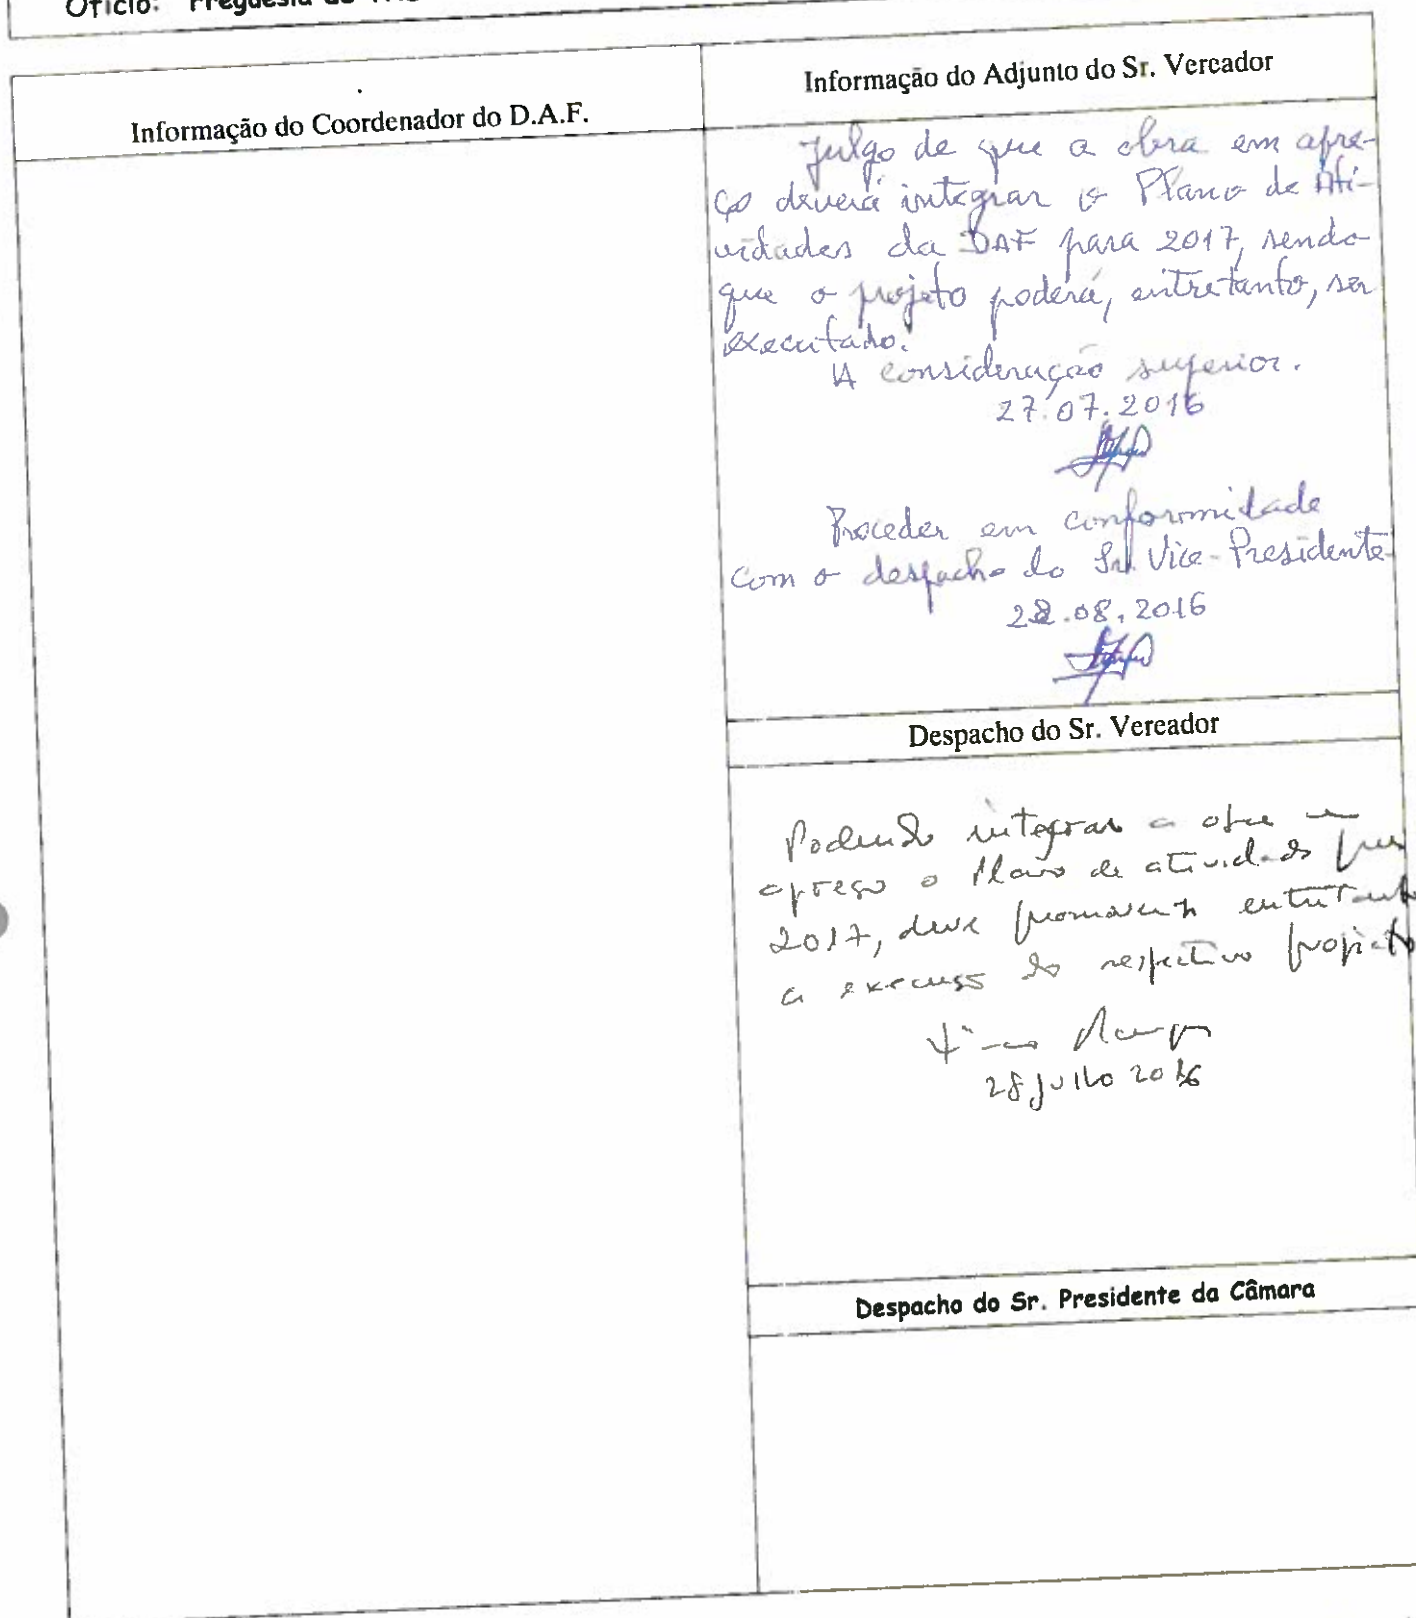 Ofício: Freguesia
Informação do Coordenador do D.A.F.
Informação do Adjunto do Sr. Vereador
Julgo de que a obra em apre-
ço deverá integrar o Plano de Ati-
vidades da DAF para 2017, sendo
que o projeto poderá, entretanto, ser
executado.
À consideração superior.
27.07.2016
Proceder em conformidade
com o despacho do Sr. Vice-Presidente
.08.2016
Despacho do Sr. Vereador
Podendo integrar a obra em
apreço o Plano de atividades para
2017, deve promover-se entretanto
a execução do respectivo projecto
28 julho 2016
Despacho do Sr. Presidente da Câmara